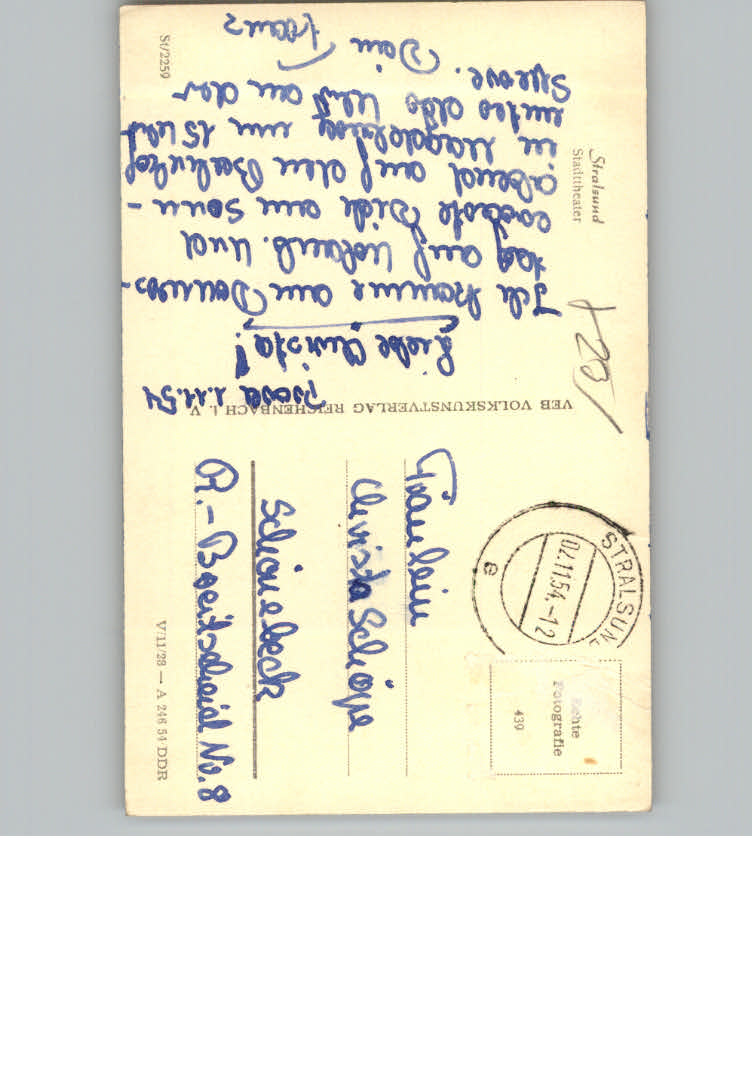 Stralsund
Stadttheater
Prora 1.11.54
Liebe Christa!
Ich komme am Donners-
tag auf Urlaub. Und
erwarte Dich am Sonn-
abend auf den Bahnhof
in Magdeburg um 15 Uhr
unten also an der
Sperre. Dein Franz
St/2259
+20
VEB VOLKSKUNSTVERLAG REICHENBACH i. V
STRALSUN
02.11.54.-12
e
Echte
Fotografie
439
Fräulein
Christa Schöpe
Schönebeck
R.-Breitscheid No. 8
V/11/28 — A 246 54 DDR